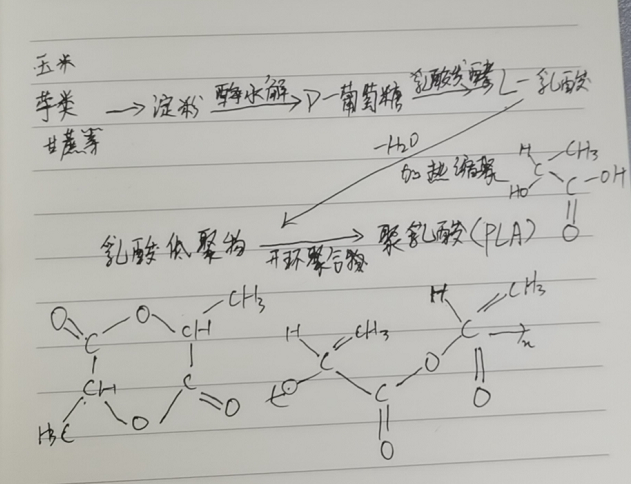 玉米
芋类 → 淀粉 酶水解 D-葡萄糖 乳酸发酵 L-乳酸
甘蔗等
-H2O
加热缩聚
H CH3
HO C C-OH
O
乳酸低聚物 开环聚合物 聚乳酸(PLA)
O O CH CH3
C C
CH O O
H3C
H C CH3
O C O
O
H C CH3
O n